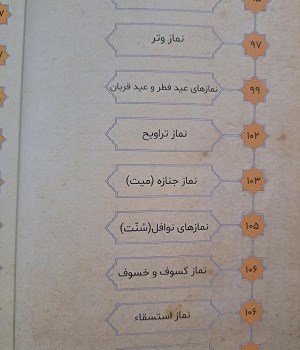 نماز وتر ۹۷
نمازهای عید فطر و عید قربان ۹۹
نماز تراویح ۱۰۲
نماز جنازه (میت) ۱۰۳
نمازهای نوافل(سُنّت) ۱۰۵
نماز کسوف و خسوف ۱۰۶
نماز استسقاء ۱۰۶